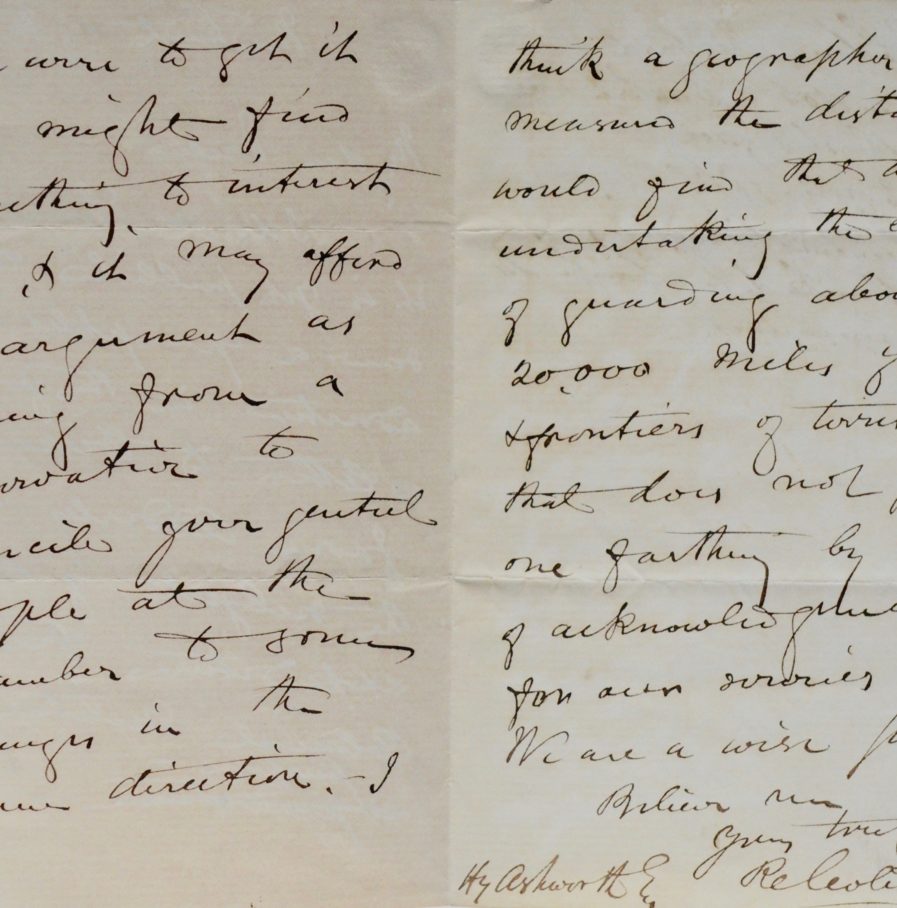 were to get it
might find
ething to interest
, & it may afford
argument as
ing from a
ervative to
ncile your genteel
ple at the
amber to some
anges in the
same direction. – I
think a geographer
measured the dista
would find that
undertaking the
of guarding abou
20,000 miles
& frontiers of
that does not
one farthing by
of acknowledgme
for our services
We are a wise
Believe me
yours
Hy Ashworth Esq